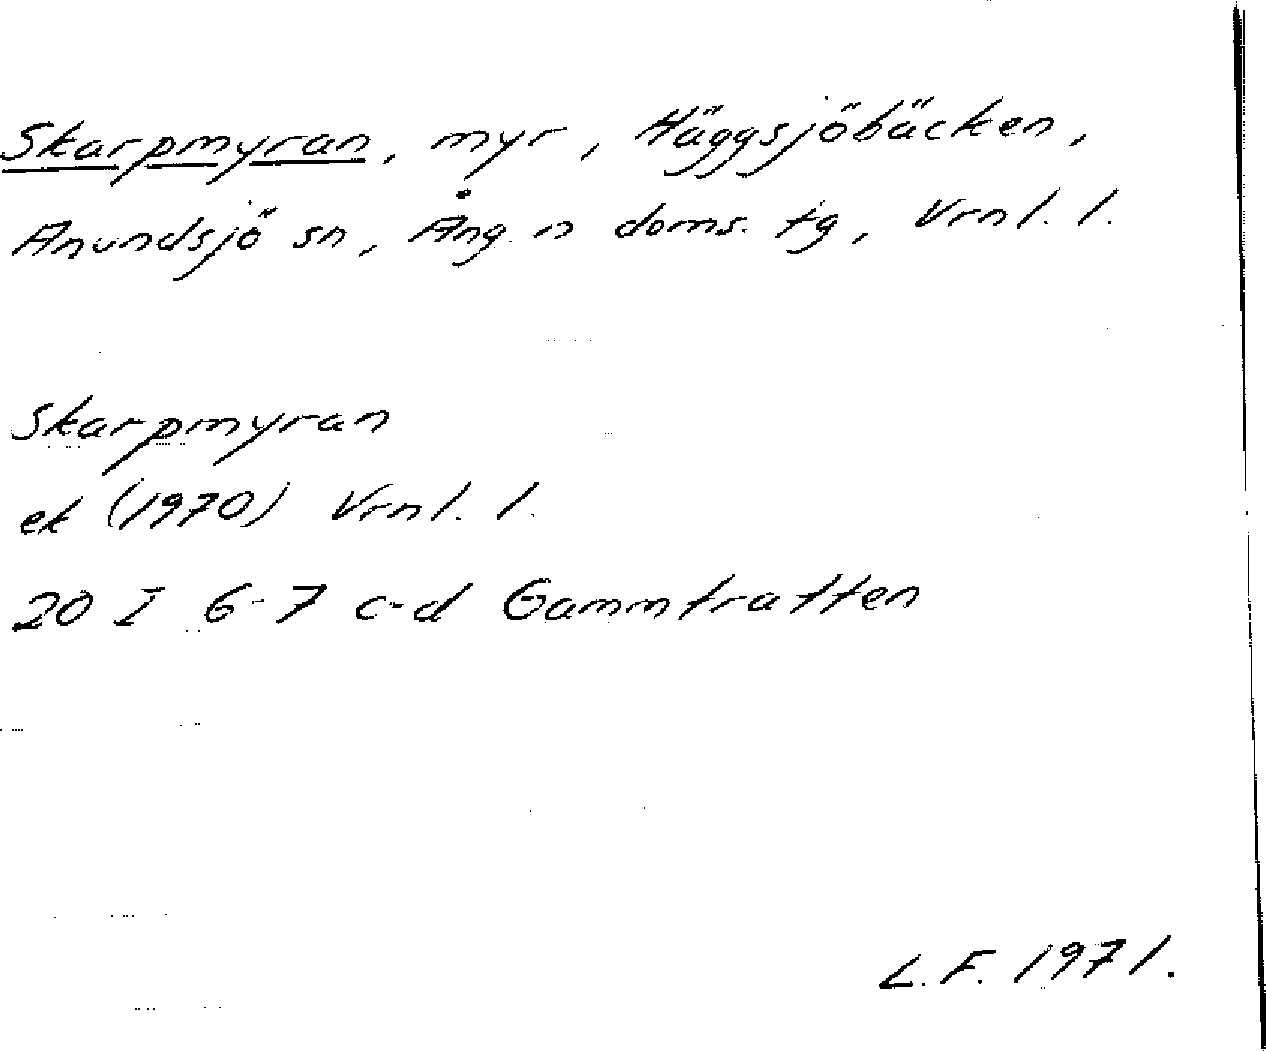 Skarpmyran, myr, Häggsjöbäcken,
Anundsjö sn, Ång. n doms. tg, Vrnl. l.
Skarpmyran
ek (1970) Vrnl. l.
20 I 6-7 c-d Gammtratten
L. F. 1971.